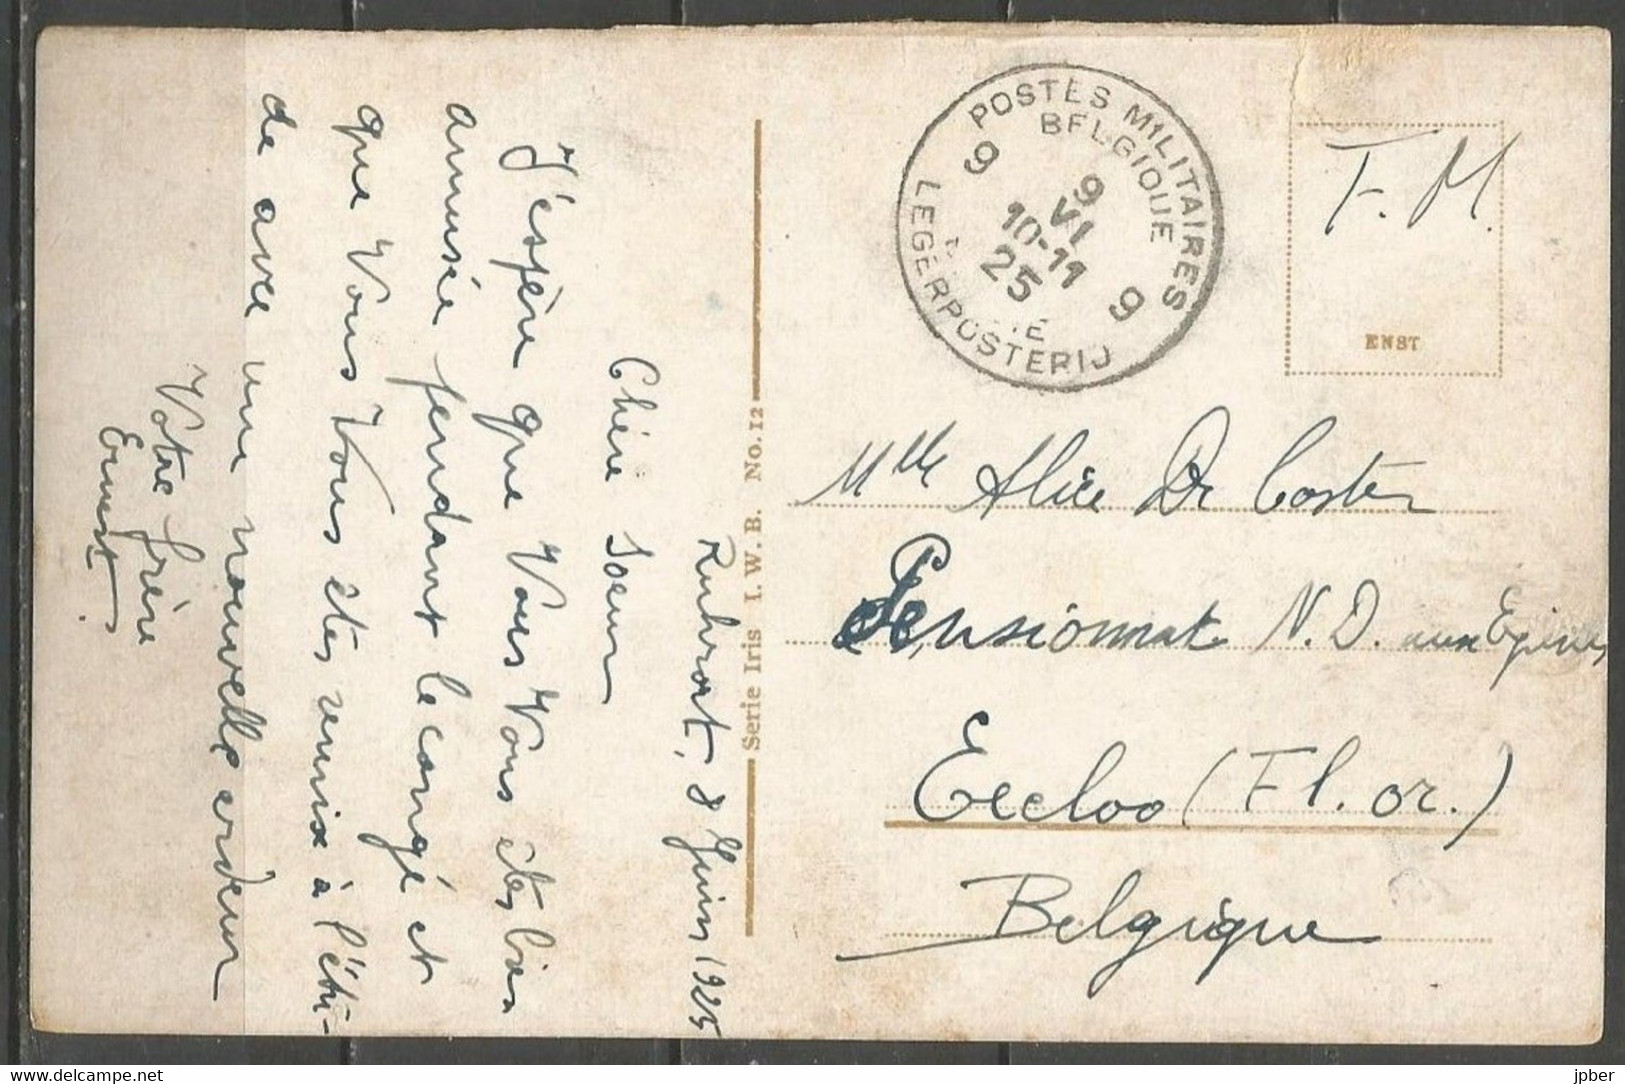 Ruhrort, 8 Juin 1925
Chère Soeur
J'espère que Vous Vous êtes bien
amusée pendant le congé et
que Vous Vous êtes remise à l'étu-
de avec une nouvelle ardeur
Votre frère
Ernest
Serie Iris I. W. B. No. 12
POSTES MILITAIRES
BELGIQUE
9 9
9
VI
10-11
25
LEGERPOSTERIJ
F. M.
ENST
Mlle Alice De Coster
Pensionnat N. D. aux Epines
Eecloo (Fl. or.)
Belgique
delcampe.net
jpber